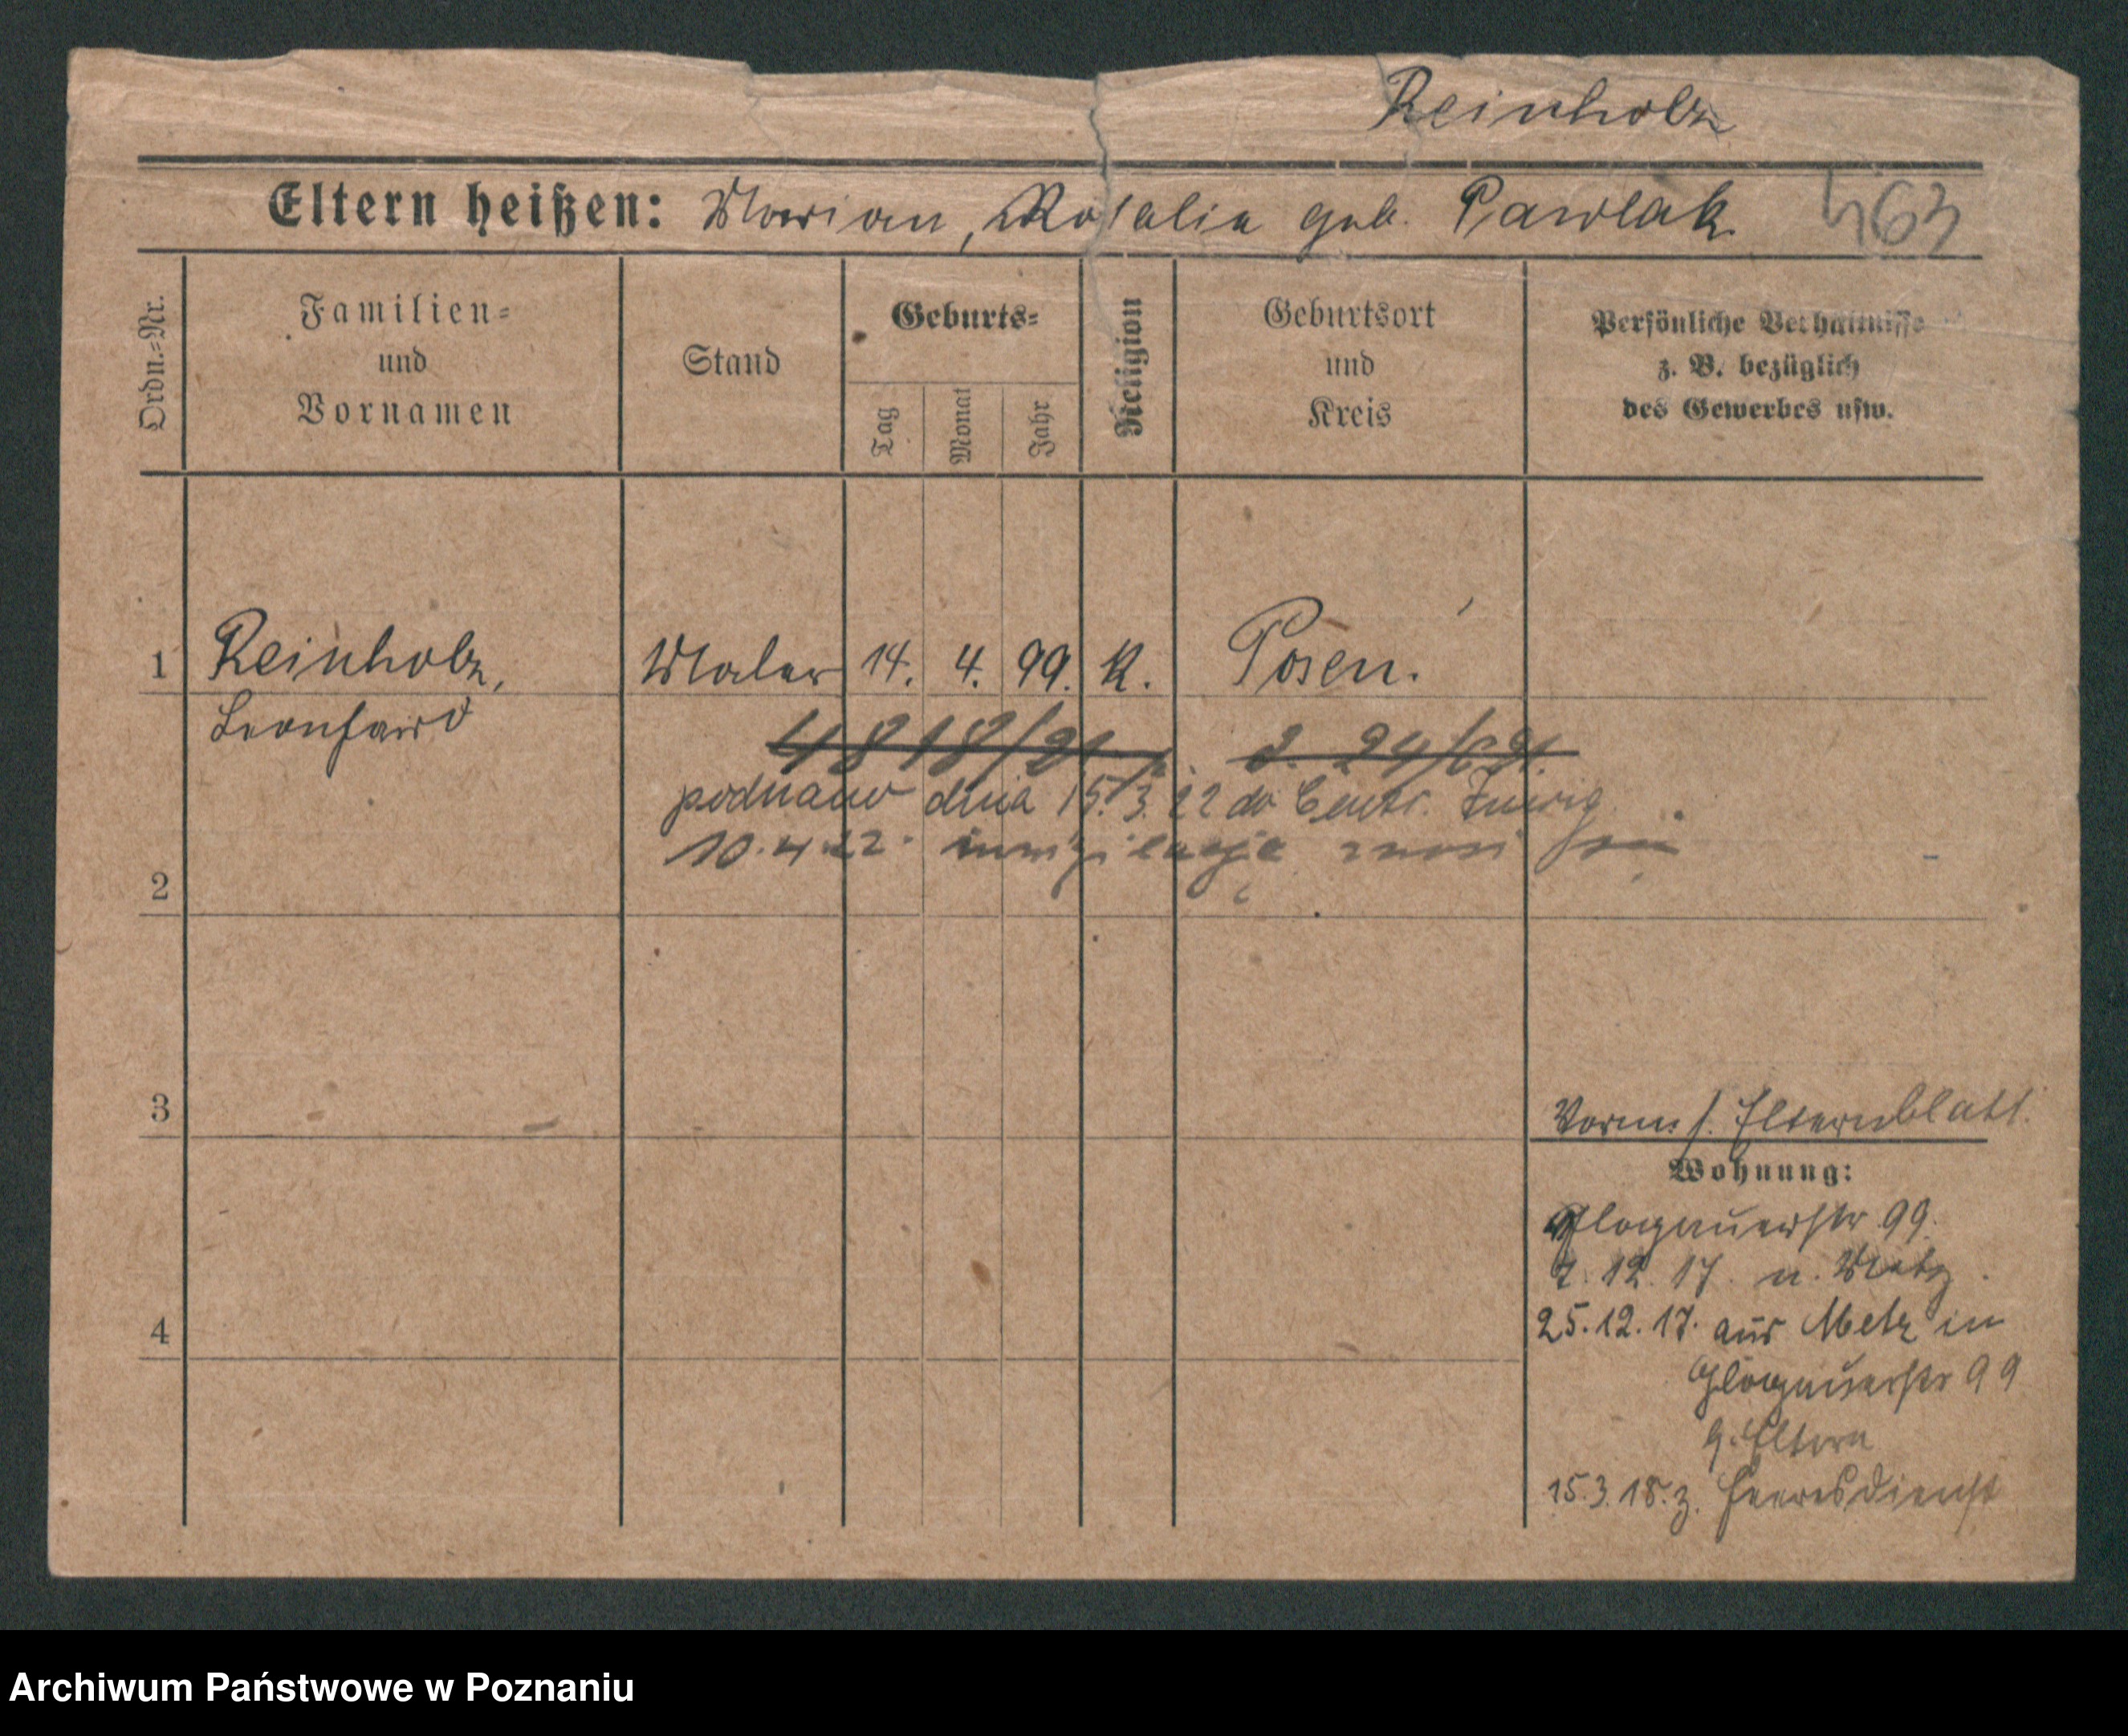 Reinholz
Eltern heißen: Marian, Rosalia geb. Pawlak 463
Ordn.=Nr.
Familien=
und
Vornamen
Stand
Geburts=
Tag
Monat
Jahr
Religion
Geburtsort
und
Kreis
Persönliche Verhältnisse
z. B. bezüglich
des Gewerbes usw.
1 Reinholz, Maler 14. 4. 99. K. Posen.
Leonhard
4818/21
podnano dnia 15./3. 22 do Centr.
10.4.22. inwigilację znosi się
2
3
Vorm. s. Elternblatt.
Wohnung:
Glogauerstr 99.
7. 12. 17. n. Metz.
25.12.17. aus Metz in
4
Glogauerstr 99
b. Eltern
15.3.18. z. Heeresdienst
Archiwum Państwowe w Poznaniu